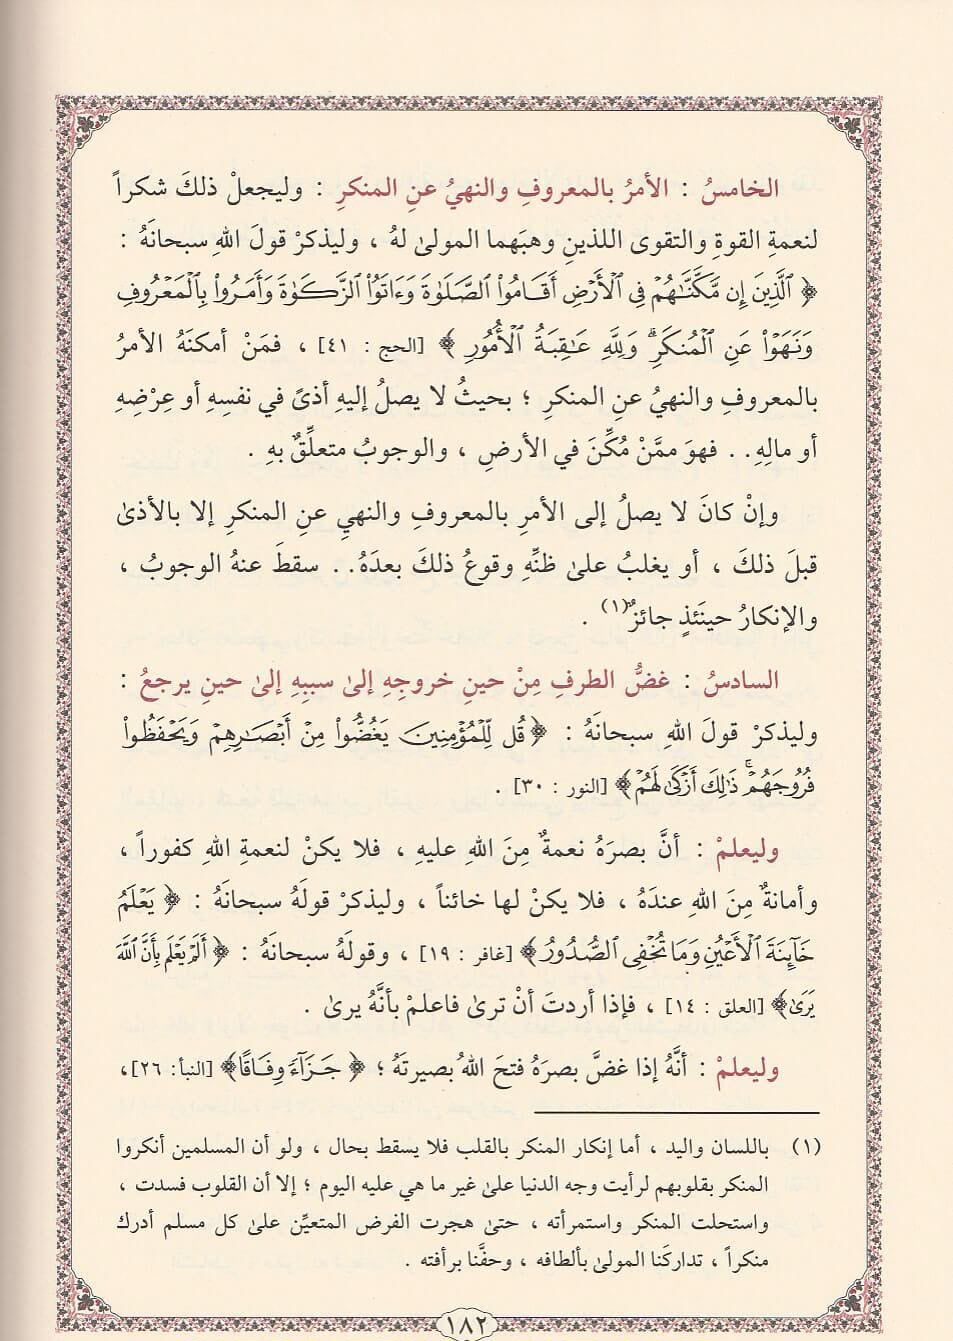 الخامسُ : الأمرُ بالمعروفِ والنهيُ عنِ المنكرِ : وليجعلْ ذلكَ شكراً
لنعمةِ القوةِ والتقوى اللذينِ وهبَهما المولىٰ لهُ ، وليذكرْ قولَ اللهِ سبحانَهُ :
﴿ ٱلَّذِينَ إِن مَّكَّنَّٰهُمْ فِى ٱلْأَرْضِ أَقَامُوا۟ ٱلصَّلَوٰةَ وَءَاتَوُا۟ ٱلزَّكَوٰةَ وَأَمَرُوا۟ بِٱلْمَعْرُوفِ
وَنَهَوْا۟ عَنِ ٱلْمُنكَرِ ۗ وَلِلَّهِ عَٰقِبَةُ ٱلْأُمُورِ ﴾ [الحج : ٤١] ، فمَنْ أمكنَهُ الأمرُ
بالمعروفِ والنهيُ عنِ المنكرِ ؛ بحيثُ لا يصلُ إليهِ أذىً في نفسِهِ أو عِرْضِهِ
أو مالِهِ.. فهوَ ممَّنْ مُكِّنَ في الأرضِ ، والوجوبُ متعلِّقٌ بهِ .
وإنْ كانَ لا يصلُ إلى الأمرِ بالمعروفِ والنهيِ عنِ المنكرِ إلا بالأذىٰ
قبلَ ذلكَ ، أو يغلبُ علىٰ ظنِّهِ وقوعُ ذلكَ بعدَهُ.. سقطَ عنهُ الوجوبُ ،
والإنكارُ حينَئذٍ جائزٌ(١) .
السادسُ : غضُّ الطرفِ مِنْ حينِ خروجِهِ إلىٰ سببِهِ إلىٰ حينِ يرجعُ :
وليذكرْ قولَ اللهِ سبحانَهُ : ﴿ قُل لِّلْمُؤْمِنِينَ يَغُضُّوا۟ مِنْ أَبْصَٰرِهِمْ وَيَحْفَظُوا۟
فُرُوجَهُمْ ۚ ذَٰلِكَ أَزْكَىٰ لَهُمْ ﴾ [النور : ٣٠] .
وليعلمْ : أنَّ بصرَهُ نعمةٌ مِنَ اللهِ عليهِ ، فلا يكنْ لنعمةِ اللهِ كفوراً ،
وأمانةٌ مِنَ اللهِ عندَهُ ، فلا يكنْ لها خائناً ، وليذكرْ قولَهُ سبحانَهُ : ﴿ يَعْلَمُ
خَآئِنَةَ ٱلْأَعْيُنِ وَمَا تُخْفِى ٱلصُّدُورُ ﴾ [غافر : ١٩] ، وقولَهُ سبحانَهُ : ﴿ أَلَمْ يَعْلَم بِأَنَّ ٱللَّهَ
يَرَىٰ ﴾ [العلق : ١٤] ، فإذا أردتَ أنْ ترىٰ فاعلمْ بأنَّهُ يرىٰ .
وليعلمْ : أنَّهُ إذا غضَّ بصرَهُ فتحَ اللهُ بصيرتَهُ ؛ ﴿ جَزَآءً وِفَاقًا ﴾ [النبأ : ٢٦]،
(١) باللسان واليد ، أما إنكار المنكر بالقلب فلا يسقط بحال ، ولو أن المسلمين أنكروا
المنكر بقلوبهم لرأيت وجه الدنيا علىٰ غير ما هي عليه اليوم ؛ إلا أن القلوب فسدت ،
واستحلت المنكر واستمرأته ، حتىٰ هجرت الفرض المتعيِّن علىٰ كل مسلم أدرك
منكراً ، تداركَنا المولىٰ بألطافه ، وحفَّنا برأفته .
١٨٢